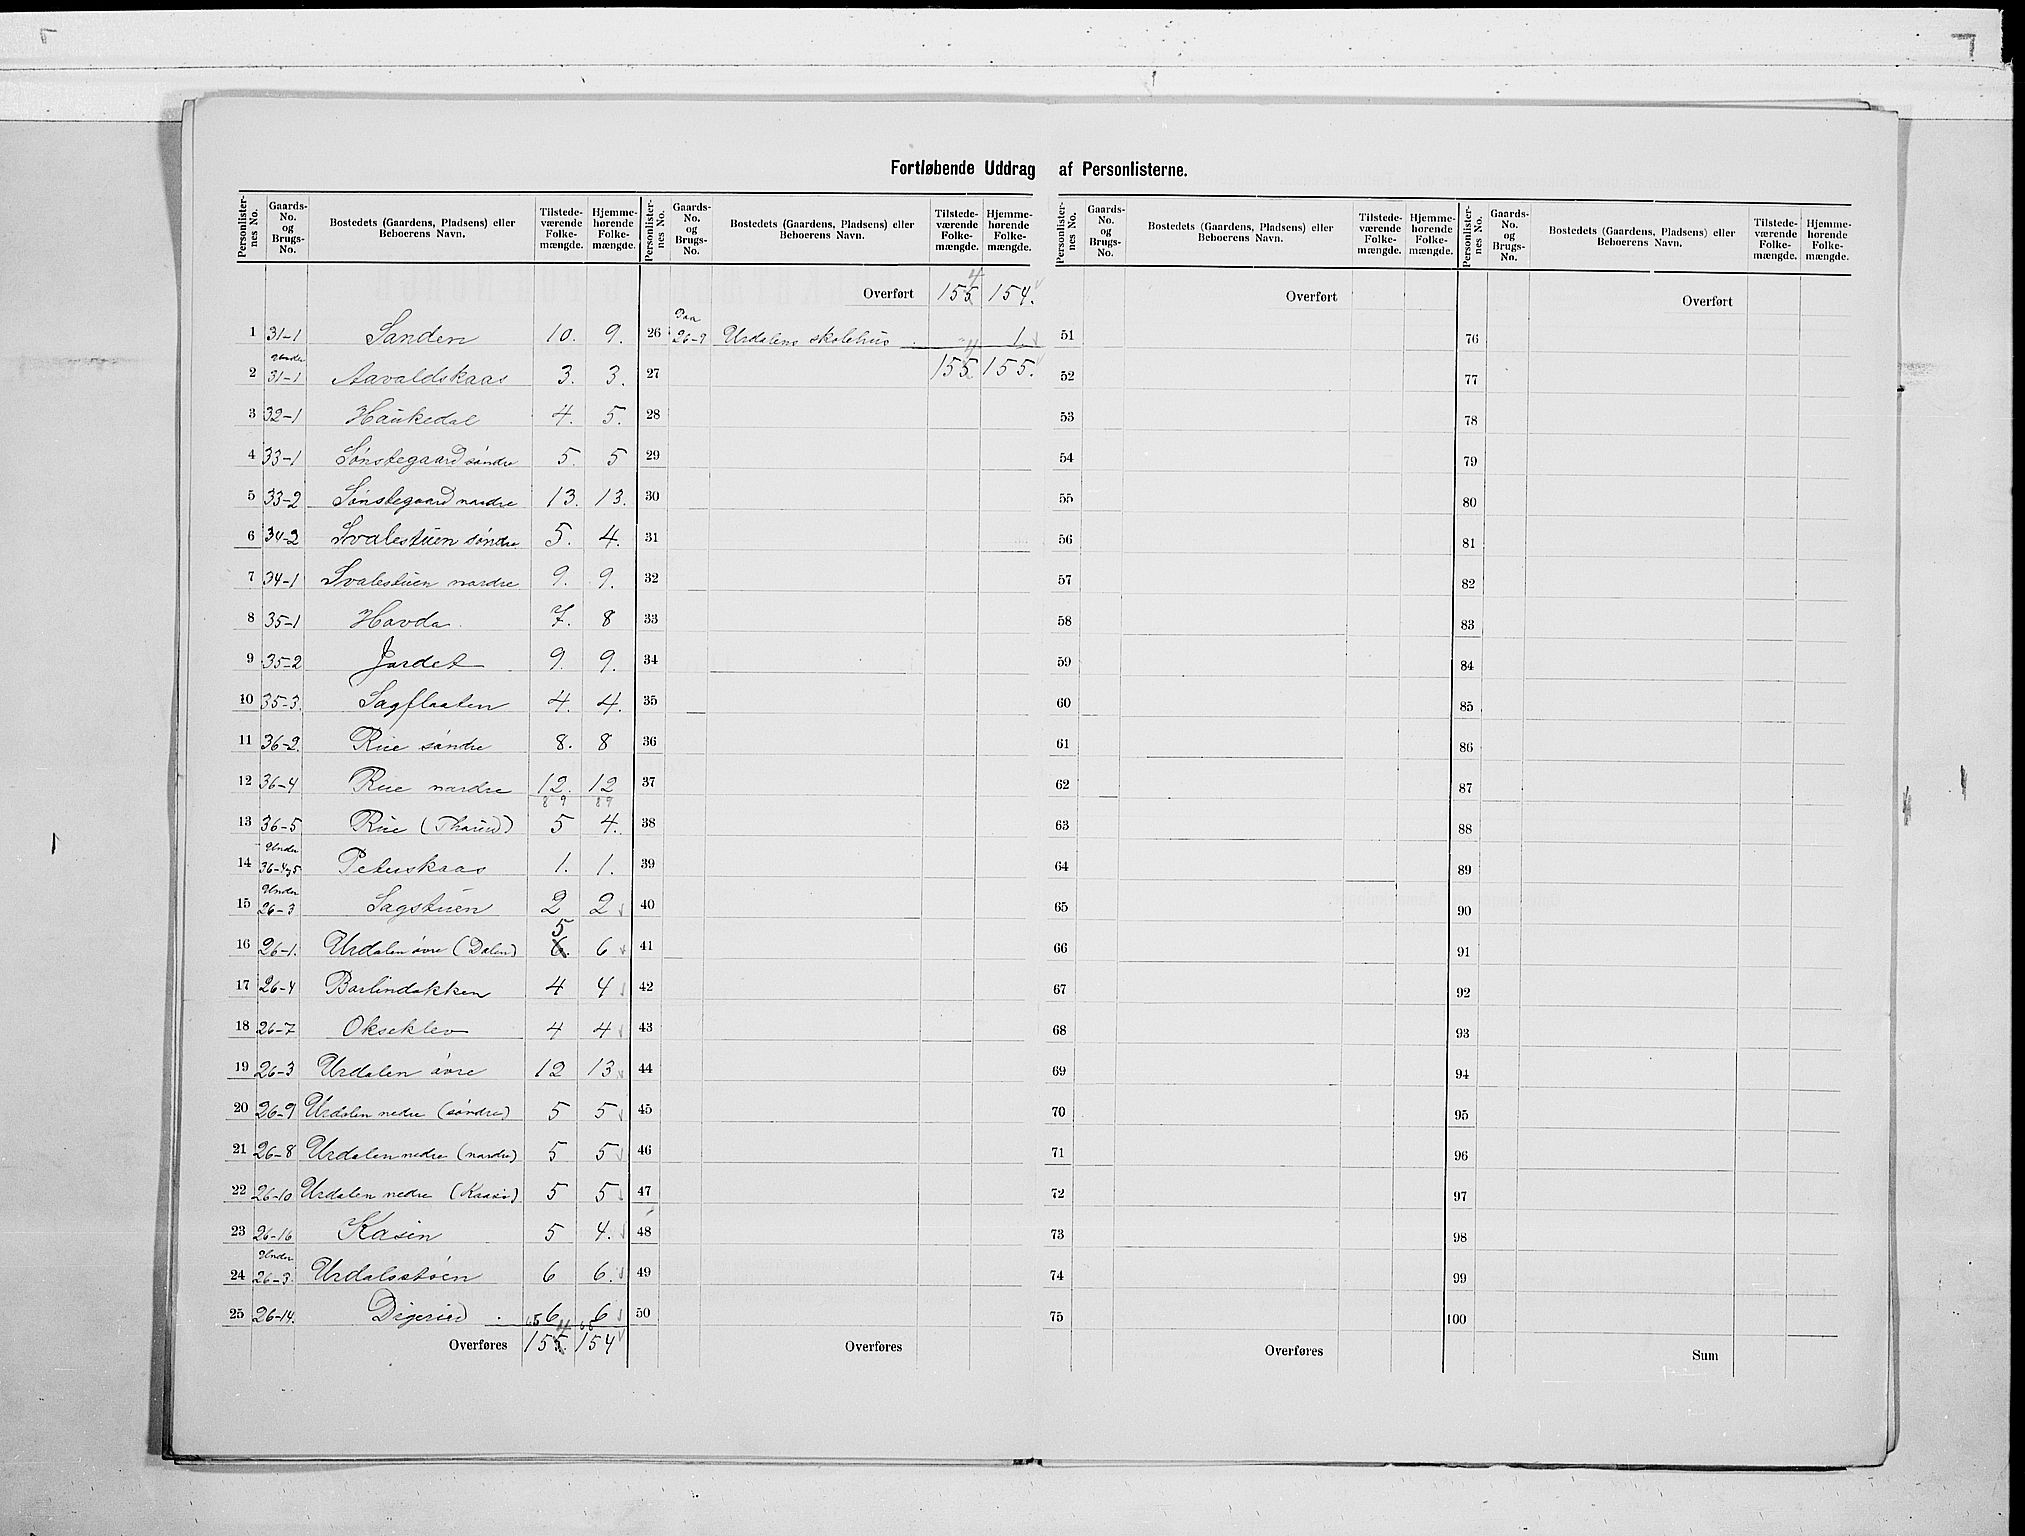 Fortløbende Uddrag af Personlisterne.
Personlister-nes No. | Gaards-No. og Brugs-No. | Bostedets (Gaardens, Pladsens) eller Beboerens Navn. | Tilstede-værende Folke-mængde. | Hjemme-hørende Folke-mængde.
1 31-1 Sanden 10. 9.
2 Under 31-1 Aavaldskaas 3. 3.
3 32-1 Haukedal 4. 5.
4 33-1 Sønstegaard søndre 5. 5
5 33-2 Sønstegaard nordre 13. 13.
6 34-2 Svalestuen søndre 5. 4.
7 34-1 Svalestuen nordre 9. 9.
8 35-1 Hovda 7. 8
9 35-2 Jordet 9. 9.
10 35-3. Sagflaaten 4. 4.
11 36-2. Rue søndre 8. 8
12 36-4 Rue nordre 12. 12
89 89
13 36-5 Rue (Thorud) 5 4.
14 Under 36-4 & 5 Peterskaas 1. 1.
15 Under 26-3 Sagstuen 2 2
16 26-1. Urdalen øvre (Dalen) 6. 5 6
17 26-4 Barlindakken 4 4
18 26-7 Okseklev 4 4
19 26-3 Urdalen øvre 12 13
20 26-9 Urdalen nedre (søndre) 5 5
21 26-8 Urdalen nedre (nordre) 5 5
22 26-10 Urdalen nedre 5 5
23 26-16 Kasin 5 4.
24 Under 26-3. Urdalsstøen 6 6.
25 26-14. Digerud 6 6
65 65
Overføres 155. 4 154
Personlister-nes No. | Gaards-No. og Brugs-No. | Bostedets (Gaardens, Pladsens) eller Beboerens Navn. | Tilstede-værende Folke-mængde. | Hjemme-hørende Folke-mængde.
Overført 155 4 154.
26 Paa 26-9 Urdalens skolehus . " 1.
27 155 4 155.
28
29
30
31
32
33
34
35
36
37
38
39
40
41
42
43
44
45
46
47
48
49
50
Overføres
Personlister-nes No. | Gaards-No. og Brugs-No. | Bostedets (Gaardens, Pladsens) eller Beboerens Navn. | Tilstede-værende Folke-mængde. | Hjemme-hørende Folke-mængde.
Overført
51
52
53
54
55
56
57
58
59
60
61
62
63
64
65
66
67
68
69
70
71
72
73
74
75
Overføres
Personlister-nes No. | Gaards-No. og Brugs-No. | Bostedets (Gaardens, Pladsens) eller Beboerens Navn. | Tilstede-værende Folke-mængde. | Hjemme-hørende Folke-mængde.
Overført
76
77
78
79
80
81
82
83
84
85
86
87
88
89
90
91
92
93
94
95
96
97
98
99
100
Sum